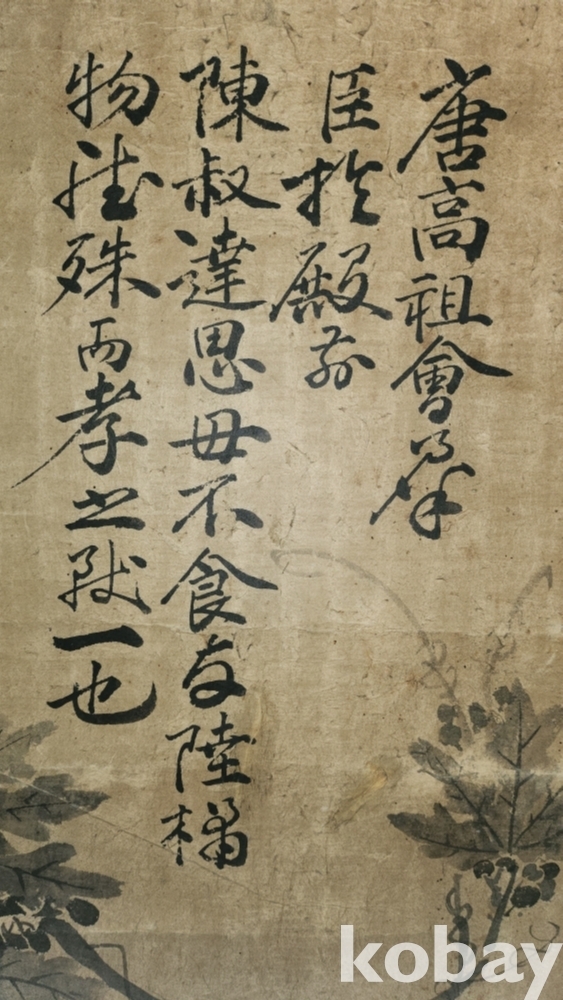 唐高祖會羣
臣於殿前
陳叔達思母不食与陸橘
物雖殊而孝之一也
kobay